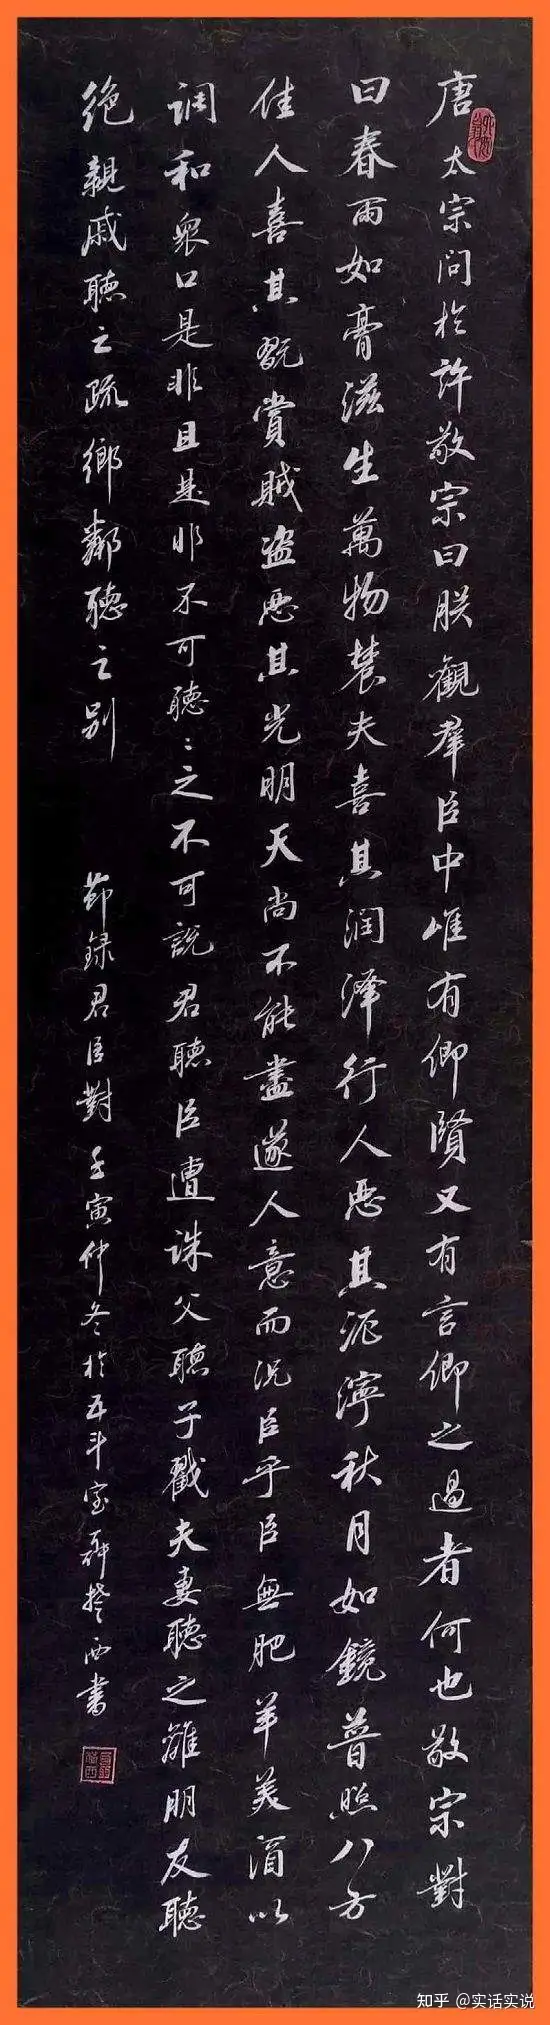 唐太宗問於許敬宗曰朕觀羣臣中唯有卿賢又有言卿之過者何也敬宗對
曰春雨如膏滋生萬物農夫喜其润泽行人惡其泥濘秋月如鏡普照八方
佳人喜其翫賞賊盗惡其光明天尚不能盡遂人意而况臣乎臣無肥羊美酒以
调和衆口是非且是非不可聽々之不可說君聽臣遭诛父聽子戮夫妻聽之離朋友聽
绝親戚聽之疏鄉鄰聽之别
節録君臣對壬寅仲冬於五斗室西書
知乎 @实话实说